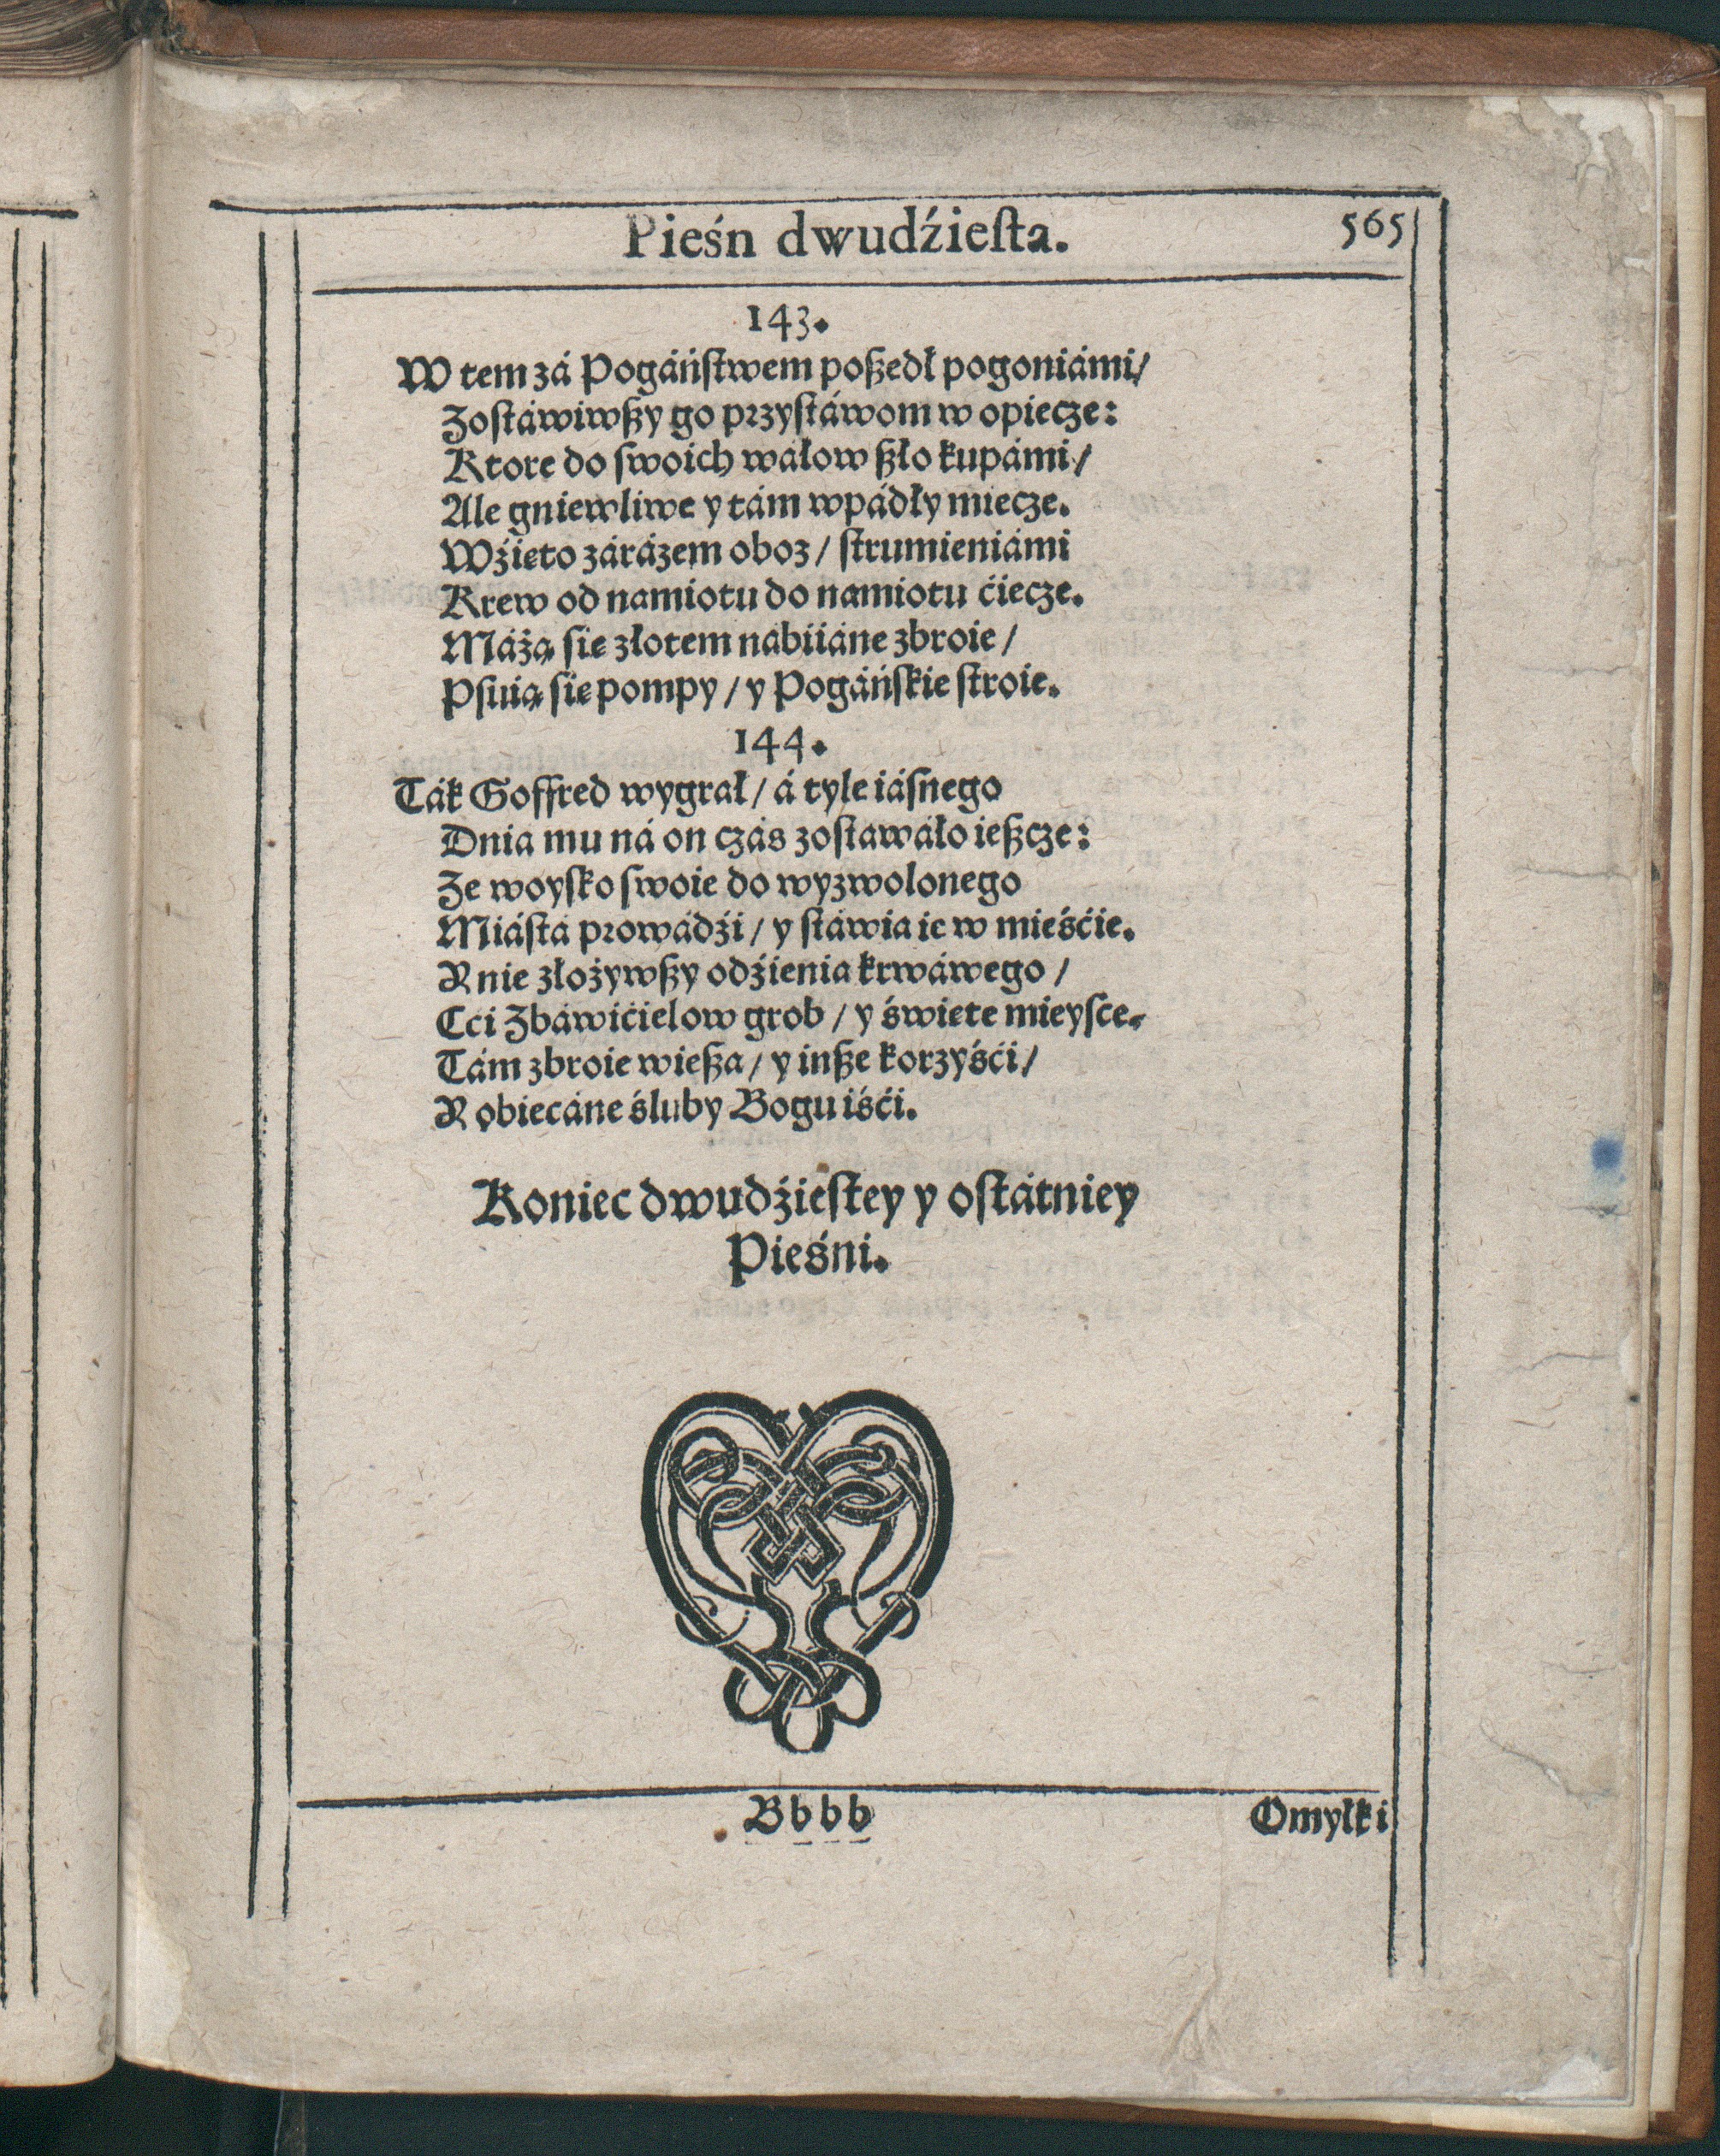 Pieśn dwudźieſta.
565
143.
W tem zá Pogáńſtwem poßedł pogoniámi/
Zoſtáwiwßy go przyſtáwom w opiecze:
Ktore do ſwoich wáłow ßło kupámi/
Ale gniewliwe y tám wpádły miecze.
Wźięto zárázem oboz/ ſtrumieniámi
Krew od namiotu do namiotu ćiecze.
Máżą ſię złotem nábiiáne zbroie/
Pſuią ſię pompy/ y Pogáńſkie ſtroie.
144.
Ták Goffred wygrał/ á tyle iáſnego
Dnia mu ná on czás zoſtawáło ießcze:
Ze woyſko ſwoie do wyzwolonego
Miáſtá prowádźi/ y ſtáwia ie w mieśćie.
A nie złożywßy odźienia krwáwego/
Cći Zbáwićielow grob/ y święte mieyſce.
Tám zbroię wießa/ y inße korzyśći/
A obiecáne śluby Bogu iśći.
Koniec dwudźieſtey y oſtátniey
Pieśni.
Bbbb
Omyłki